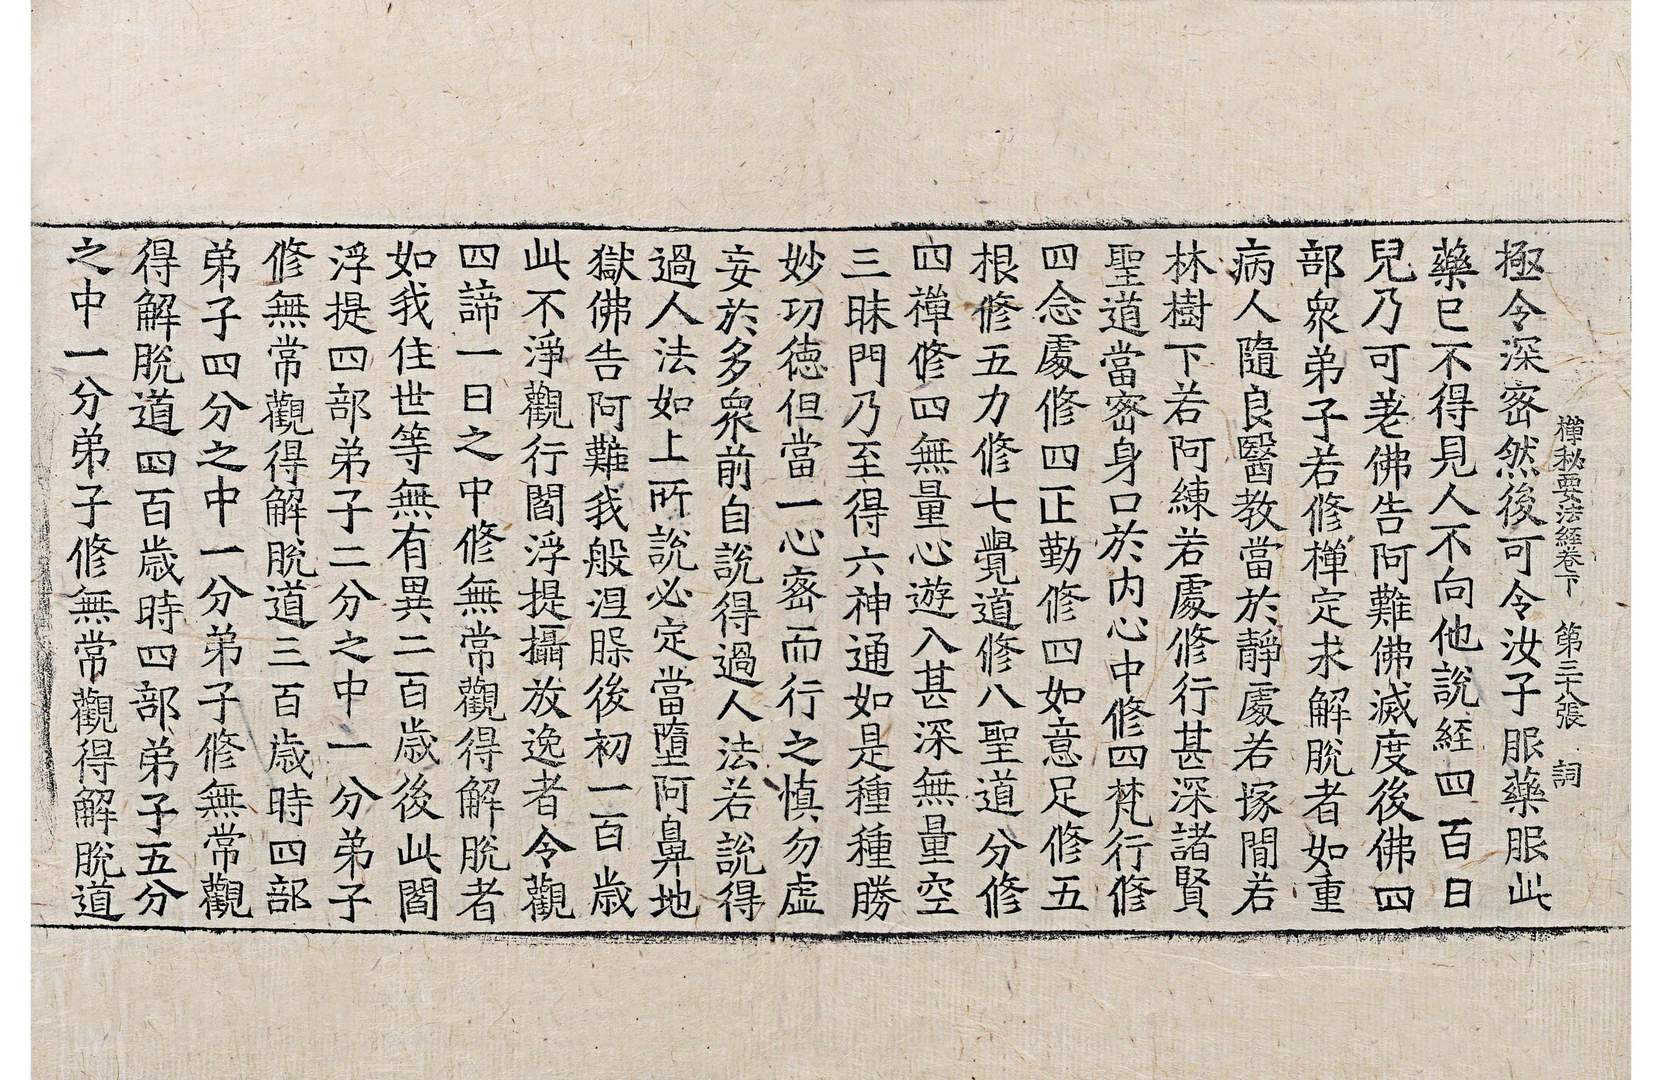 禪秘要法經卷下　第三十八張　詞
極令深密然後可令汝子服藥服此
藥已不得見人不向他說經四百日
兒乃可老佛告阿難佛滅度後佛四
部衆弟子若修禪定求解脫者如重
病人隨良醫教當於靜處若塚間若
林樹下若阿練若處修行甚深諸賢
聖道當密身口於內心中修四梵行修
四念處修四正勤修四如意足修五
根修五力修七覺道修八聖道分修
四禪修四無量心遊入甚深無量空
三昧門乃至得六神通如是種種勝
妙功德但當一心密而行之慎勿虛
妄於多衆前自說得過人法若說得
過人法如上所說必定當墮阿鼻地
獄佛告阿難我般涅槃後初一百歲
此不淨觀行閻浮提攝放逸者令觀
四諦一日之中修無常觀得解脫者
如我住世等無有異二百歲後此閻
浮提四部弟子二分之中一分弟子
修無常觀得解脫道三百歲時四部
弟子四分之中一分弟子修無常觀
得解脫道四百歲時四部弟子五分
之中一分弟子修無常觀得解脫道